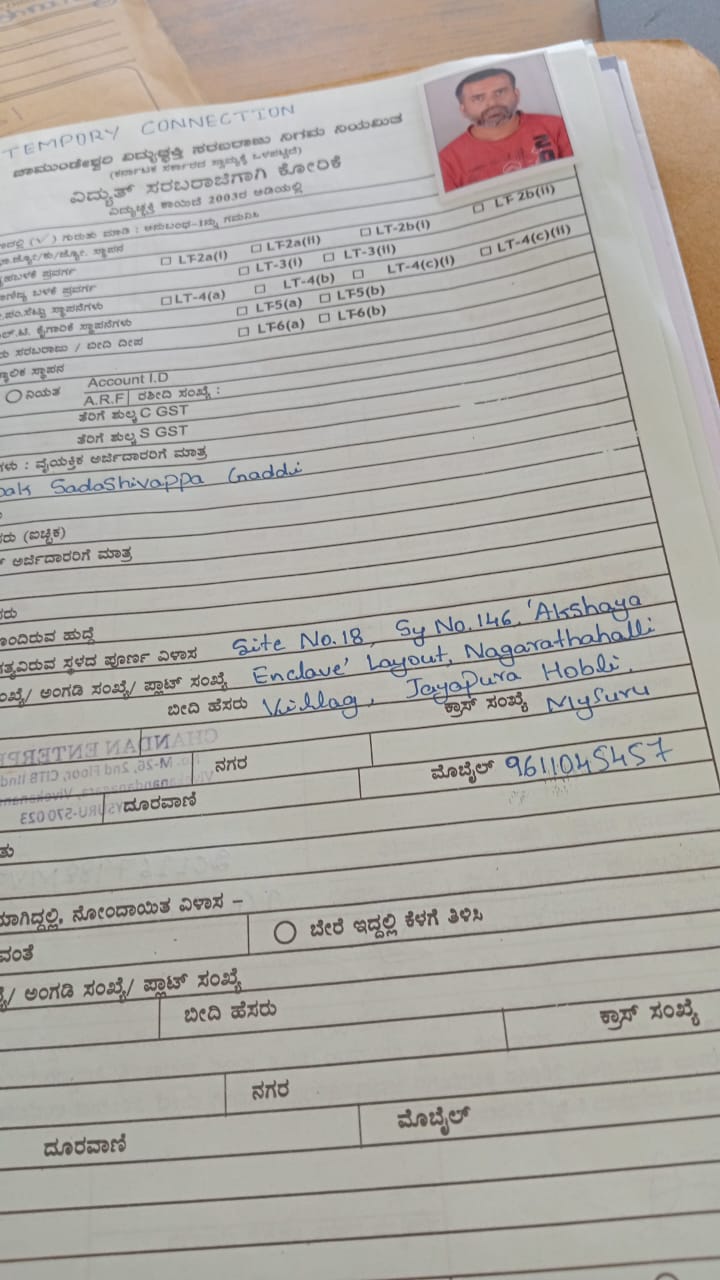 TEMPORY CONNECTION
ಚಾಮುಂಡೇಶ್ವರಿ ವಿದ್ಯುಚ್ಛಕ್ತಿ ಸರಬರಾಜು ನಿಗಮ ನಿಯಮಿತ
(ಕರ್ನಾಟಕ ಸರ್ಕಾರದ ಸ್ವಾಮ್ಯಕ್ಕೆ ಒಳಪಟ್ಟಿದೆ)
ವಿದ್ಯುತ್ ಸರಬರಾಜಿಗಾಗಿ ಕೋರಿಕೆ
ವಿದ್ಯುಚ್ಛಕ್ತಿ ಕಾಯಿದೆ 2003ರ ಅಡಿಯಲ್ಲಿ
(√) ಗುರುತು ಮಾಡಿ : ಅನುಬಂಧ-1ನ್ನು ಗಮನಿಸಿ
ಸ್ಥಾಪನ ☐ LT-2a(I) ☐ LT-2a(II) ☐ LT-2b(I) ☐ LT-2b(II)
ಬಳಕೆ ಪ್ರವರ್ಗ ☐ LT-3(I) ☐ LT-3(II)
ಸ್ಥಾಪನೆಗಳು ☐ LT-4(a) ☐ LT-4(b) ☐ LT-4(c)(I) ☐ LT-4(c)(II)
ಕೈಗಾರಿಕೆ ಸ್ಥಾಪನೆಗಳು ☐ LT-5(a) ☐ LT-5(b)
ಸರಬರಾಜು / ಬೀದಿ ದೀಪ ☐ LT-6(a) ☐ LT-6(b)
ಸ್ಥಾಪನ
ನಿಯತ Account I.D
A.R.F ರಶೀದಿ ಸಂಖ್ಯೆ :
ತೆರಿಗೆ ಶುಲ್ಕ C GST
ತೆರಿಗೆ ಶುಲ್ಕ S GST
ವೈಯಕ್ತಿಕ ಅರ್ಜಿದಾರರಿಗೆ ಮಾತ್ರ
SadaShivappa Gaddi
(ಐಚ್ಛಿಕ)
ಅರ್ಜಿದಾರರಿಗೆ ಮಾತ್ರ
ಹುದ್ದೆ
ಸ್ಥಳದ ಪೂರ್ಣ ವಿಳಾಸ Site No.18, Sy No.146, 'Akshaya
ಅಂಗಡಿ ಸಂಖ್ಯೆ/ ಪ್ಲಾಟ್ ಸಂಖ್ಯೆ Enclave' Layout, Nagarathahalli
ಬೀದಿ ಹೆಸರು Villag, Jayapura Hobli,
ಕ್ರಾಸ್ ಸಂಖ್ಯೆ Mysuru
ನಗರ
ಮೊಬೈಲ್ 9611045457
ದೂರವಾಣಿ
ನೋಂದಾಯಿತ ವಿಳಾಸ –
ಬೇರೆ ಇದ್ದಲ್ಲಿ ಕೆಳಗೆ ತಿಳಿಸಿ
ಅಂಗಡಿ ಸಂಖ್ಯೆ/ ಪ್ಲಾಟ್ ಸಂಖ್ಯೆ
ಬೀದಿ ಹೆಸರು
ಕ್ರಾಸ್ ಸಂಖ್ಯೆ
ನಗರ
ದೂರವಾಣಿ
ಮೊಬೈಲ್